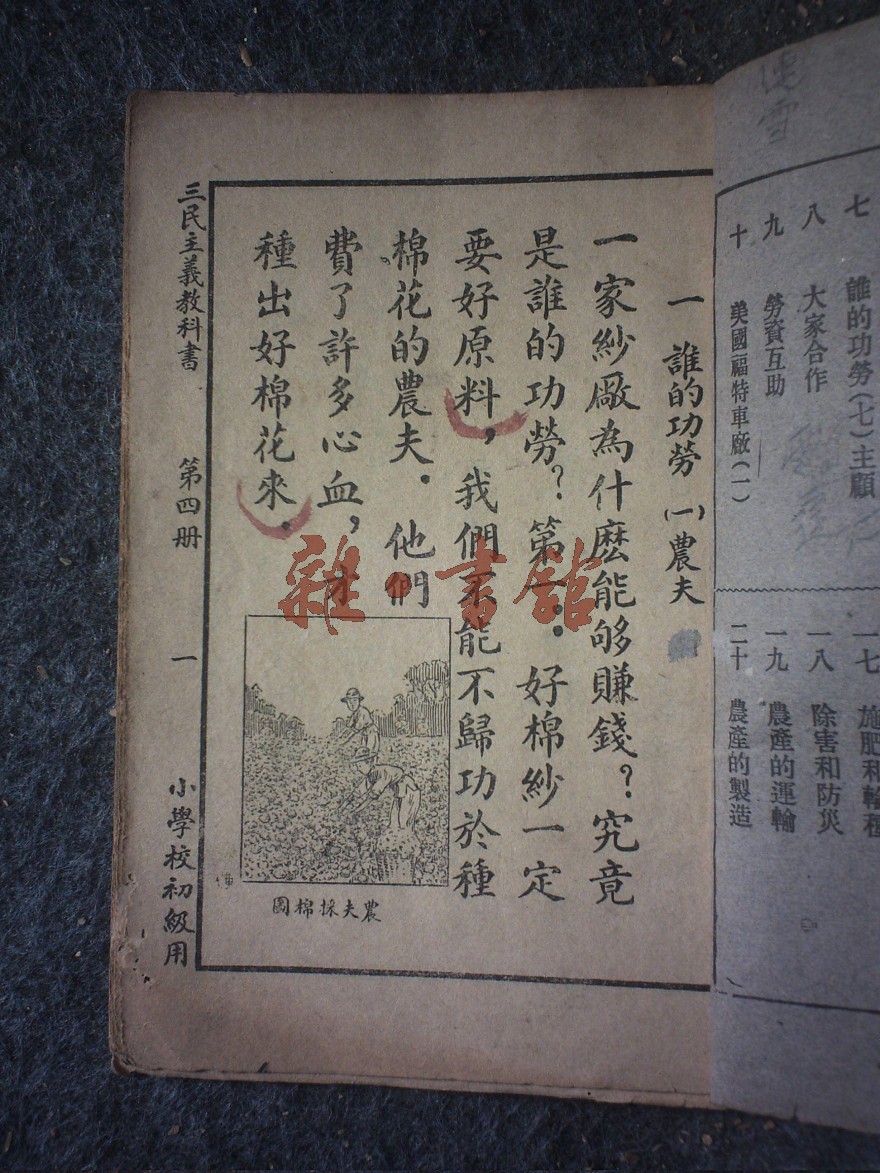 七　誰的功勞(七)主顧
八　大家合作
九　勞資互助
十　美國福特車廠(一)
一七　施肥和輪種
一八　除害和防災
一九　農產的運輸
二十　農產的製造
一　誰的功勞　(一)農夫
一家紗廠為什麽能够賺錢？究竟
是誰的功勞？第一：好棉紗一定
要好原料，我們不能不歸功於種
棉花的農夫．他們
費了許多心血，才
種出好棉花來．
農夫採棉圖
三民主義教科書　第四册　一　小學校初級用
雜·書館